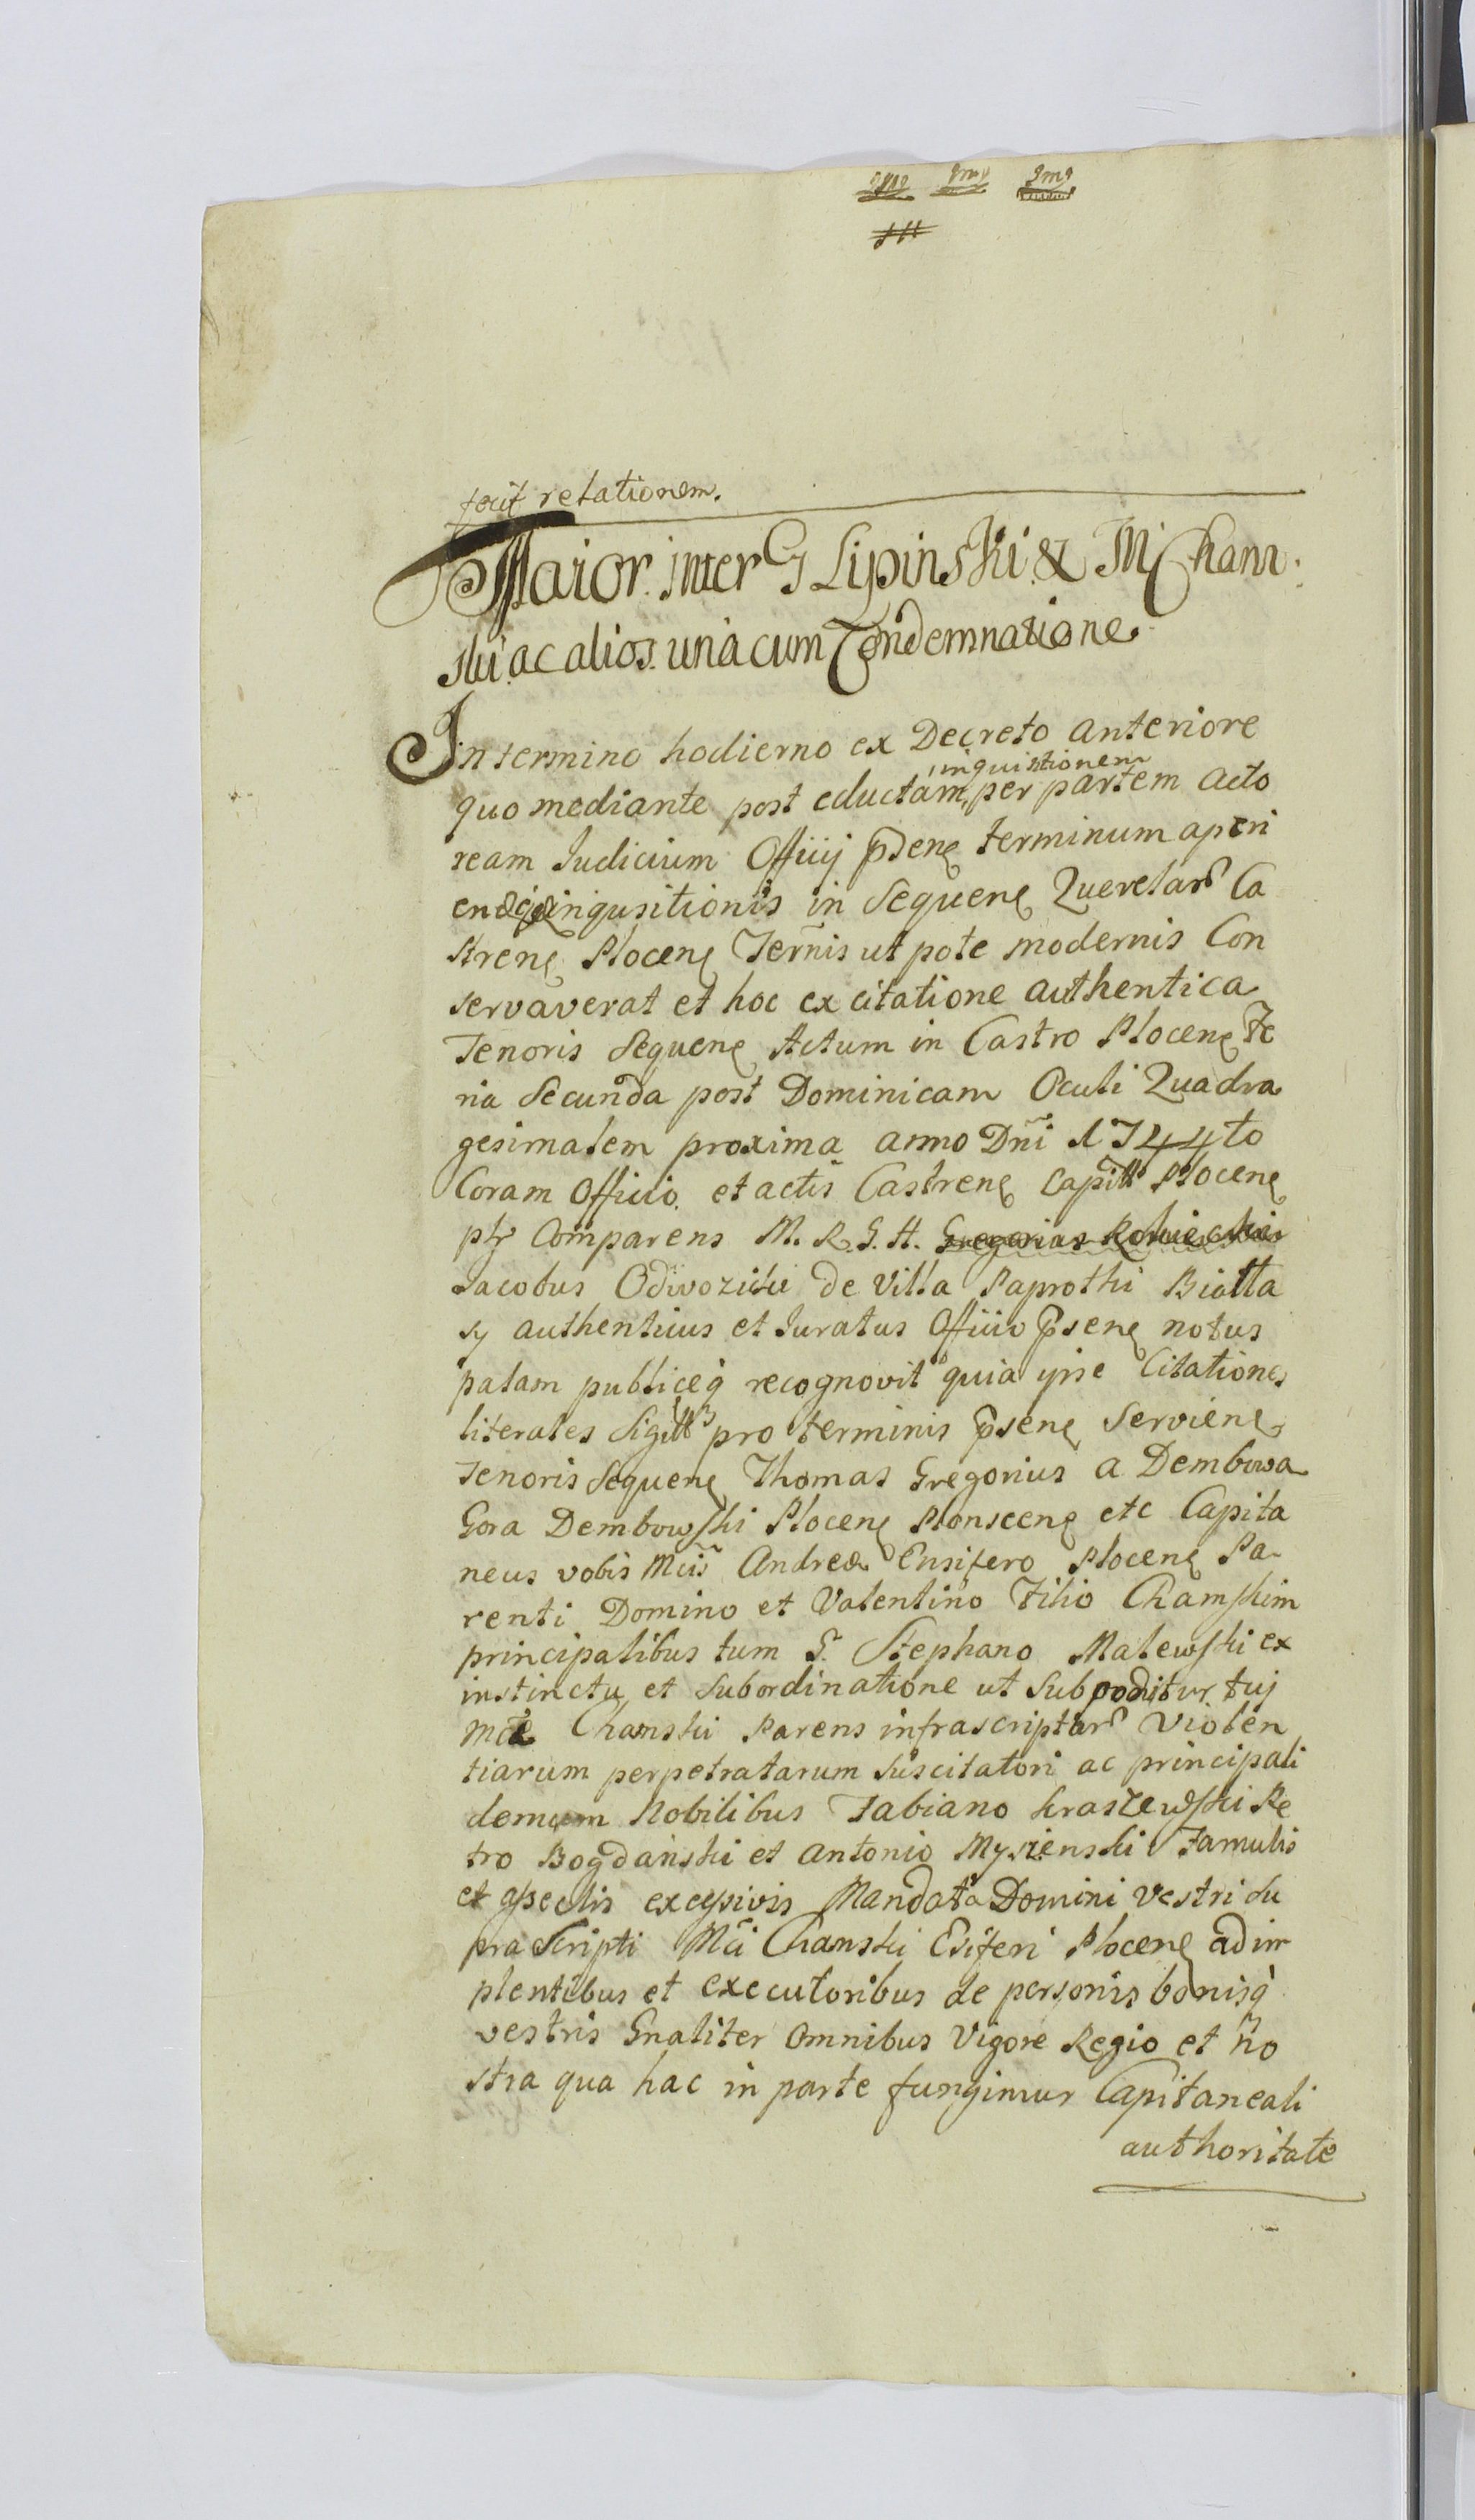 fecit relationem.
Maior. inter G Lipinski & M Cham
ski ac alios una cum Condemnatione
In termino hodierno ex Decreto anteriore
quo mediante post eductam inquisitionem per partem acto
ream Iudicium Officij pñsens terminum aperi
inqusitionis in Sequens Querelar Ca
strens Plocens Terñis ut pote modernis Con
servaverat et hoc ex citatione authentica
Tenoris Sequens Actum in Castro Plocens Fe
ria Secunda post Dominicam Oculi Quadra
gesimalem proxima anno Dñi 1744to
Coram Officio et actis Castrens Capitt Plocens
plr Comparens M. R. G. H. Gregorius
Jacobus Odiwozski de Villa Paprotki Bialta
sy authenticus et Iuratus Officio pñsens notus
palam publiceq recognovit quia ipse Citationes
literales Sigitt pro terminis pñsens Serviens
Tenoris Sequens Thomas Gregorius a Dembowa
Gora Dembowski Plocens Plonscens etc Capita
neus vobis Mcis Andreæ Ensifero Plocens Pa
renti Domino et Valentino Filio Chamskim
principalibus tum G. Stephano Malewski ex
instinctu et Subordinatione ut Subponitur tuj
Mce Chamski Parens infrascriptar Violen
tiarum perpetratarum Suscitatori ac principali
demum Nobilibus Fabiano Kraszewski Pe
tro Bogdanski et Antonio Myszenski Famulis
et asseclis excessivis Mandata Domini Vestri Su
pra Scripti Mci Chamski Esiferi Plocens adim
plentibus et executoribus de personis bonisq
vestris Gnaliter Omnibus Vigore Regio et no
stra qua hac in parte fungimur Capitaneali
authoritate